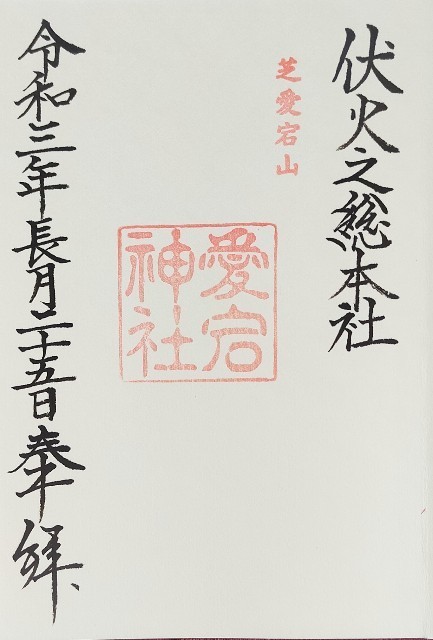 伏火之総本社
芝愛宕山
愛宕
神社
令和三年長月二十五日奉拝